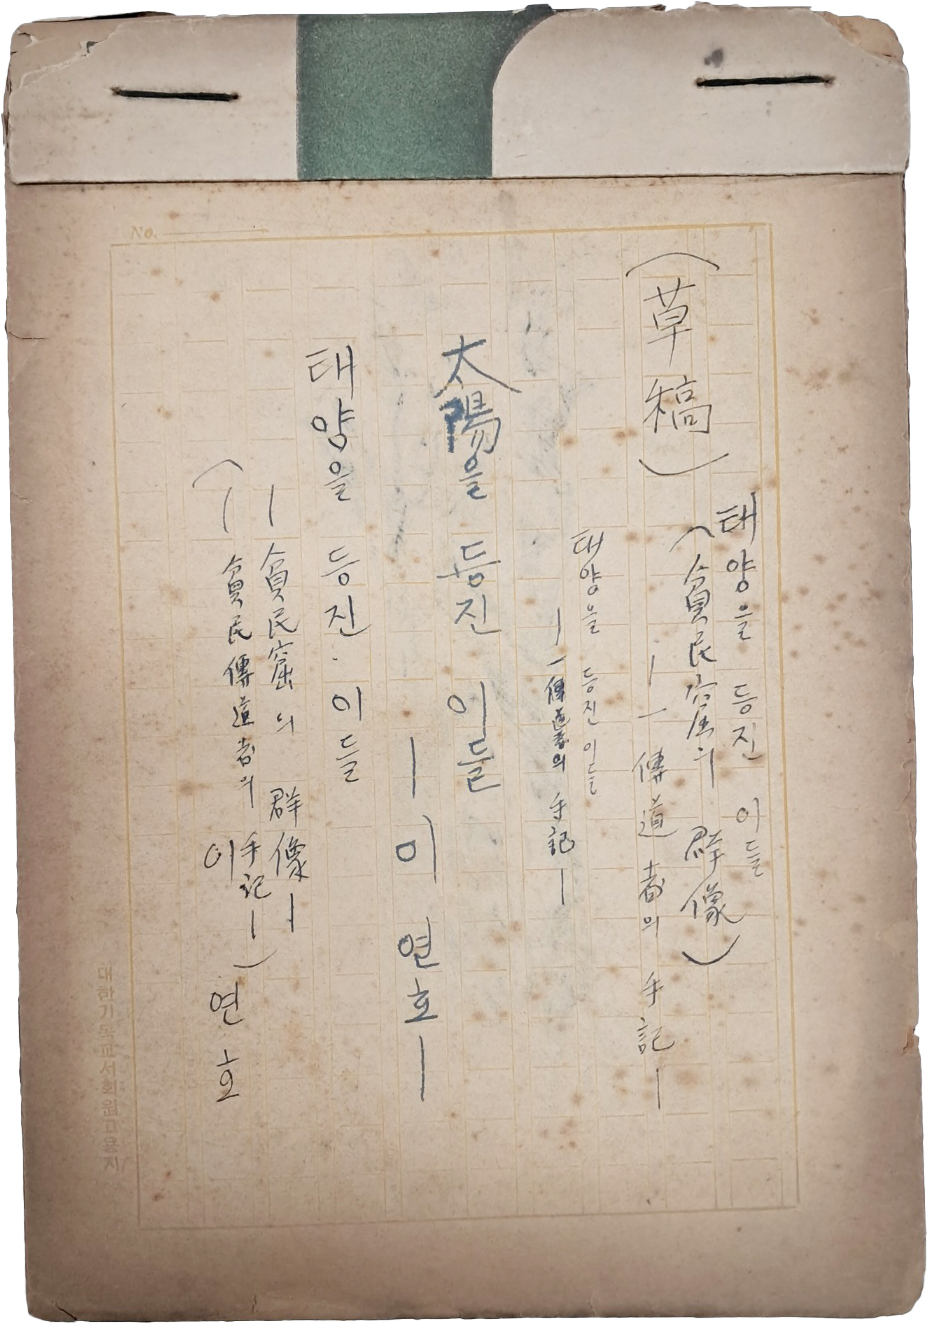 No.
(草稿)
태양을 등진 이들
(貧民窟의 群像)
— 一 傳道者의 手記 —
태양을 등진 이들
— 一傳道者의 手記 —
太陽을 등진 이들
— 이 연호 —
태양을 등진 이들
— 貧民窟의 群像 —
(— 貧民傳道者의 手記 —)
이 연호
대한기독교서회원고용지